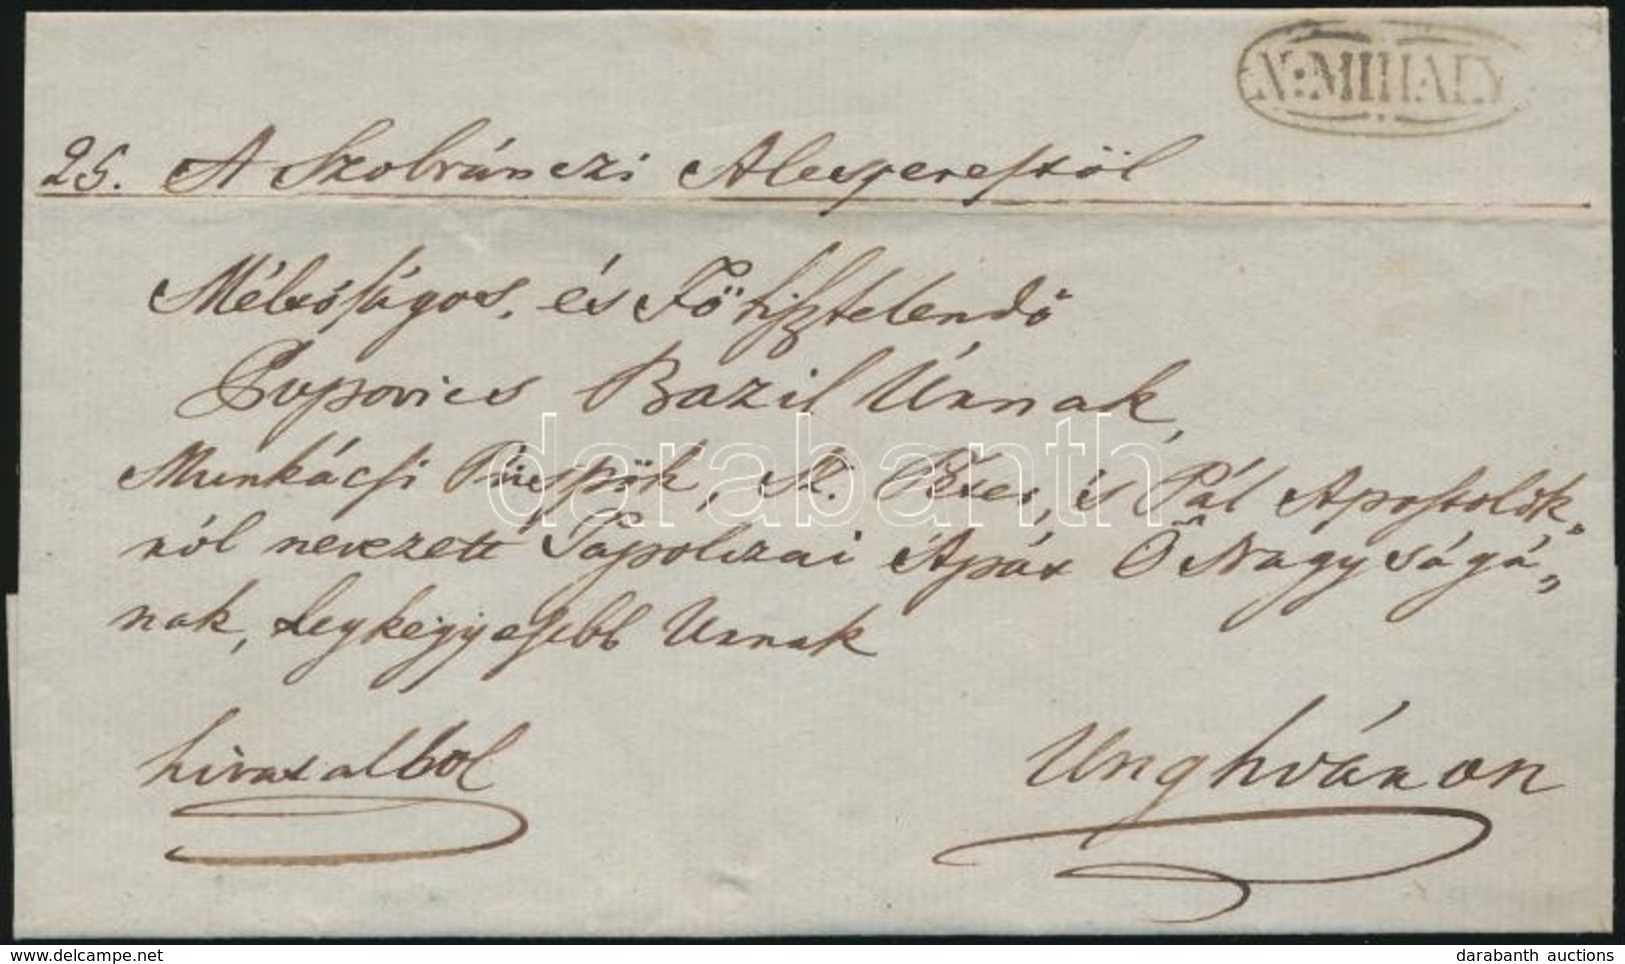 N: MIHALY
25. A Szobránczi Alesperestöl
Méltóságos, és Fö tisztelendö
Popovics Bazil Úrnak,
Munkácsi Püspök, St. Péter, és Pál Apostolok„
ról nevezett Tapolczai Apát Ö Nagyságá„
nak, Legkegyesebb Urnak
hivatalbol
Unghváron
darabanth
delcampe.net
darabanth auctions